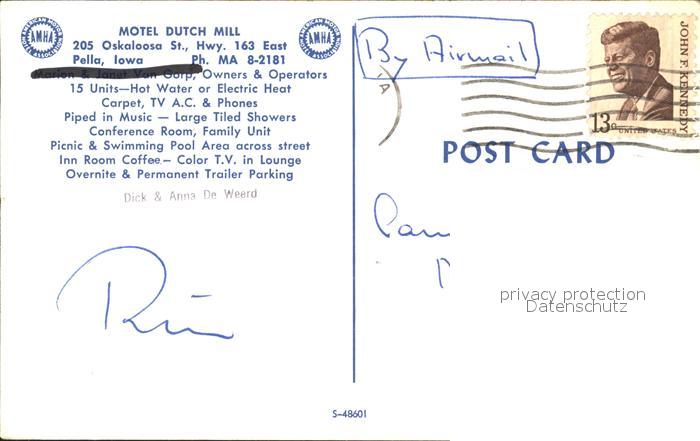 MOTEL DUTCH MILL
205 Oskaloosa St., Hwy. 163 East
Pella, Iowa Ph. MA 8-2181
Marion & Janet Van Gorp, Owners & Operators
15 Units—Hot Water or Electric Heat
Carpet, TV A.C. & Phones
Piped in Music — Large Tiled Showers
Conference Room, Family Unit
Picnic & Swimming Pool Area across street
Inn Room Coffee — Color T.V. in Lounge
Overnite & Permanent Trailer Parking
Dick & Anna De Weerd
AMERICAN MOTOR HOTEL ASSOCIATION
AMHA
AMHA
By Airmail
JOHN F. KENNEDY
13c UNITED STATES
POST CARD
privacy protection
Datenschutz
S-48601